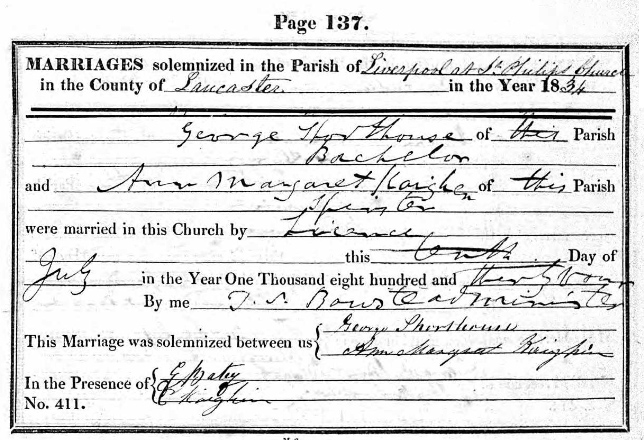 Page 137.
MARRIAGES solemnized in the Parish of Liverpool at St Philips Church
in the County of Lancaster in the Year 1834
George Shorthouse of this Parish
Bachelor
and Ann Margaret Kaighen of this Parish
Spinster
were married in this Church by Licence
this tenth Day of
July in the Year One Thousand eight hundred and thirty four
By me J. S. Bowstead Minister
This Marriage was solemnized between us { George Shorthouse
Ann Margaret Kaighin
In the Presence of { Batey
Kaighin
No. 411.